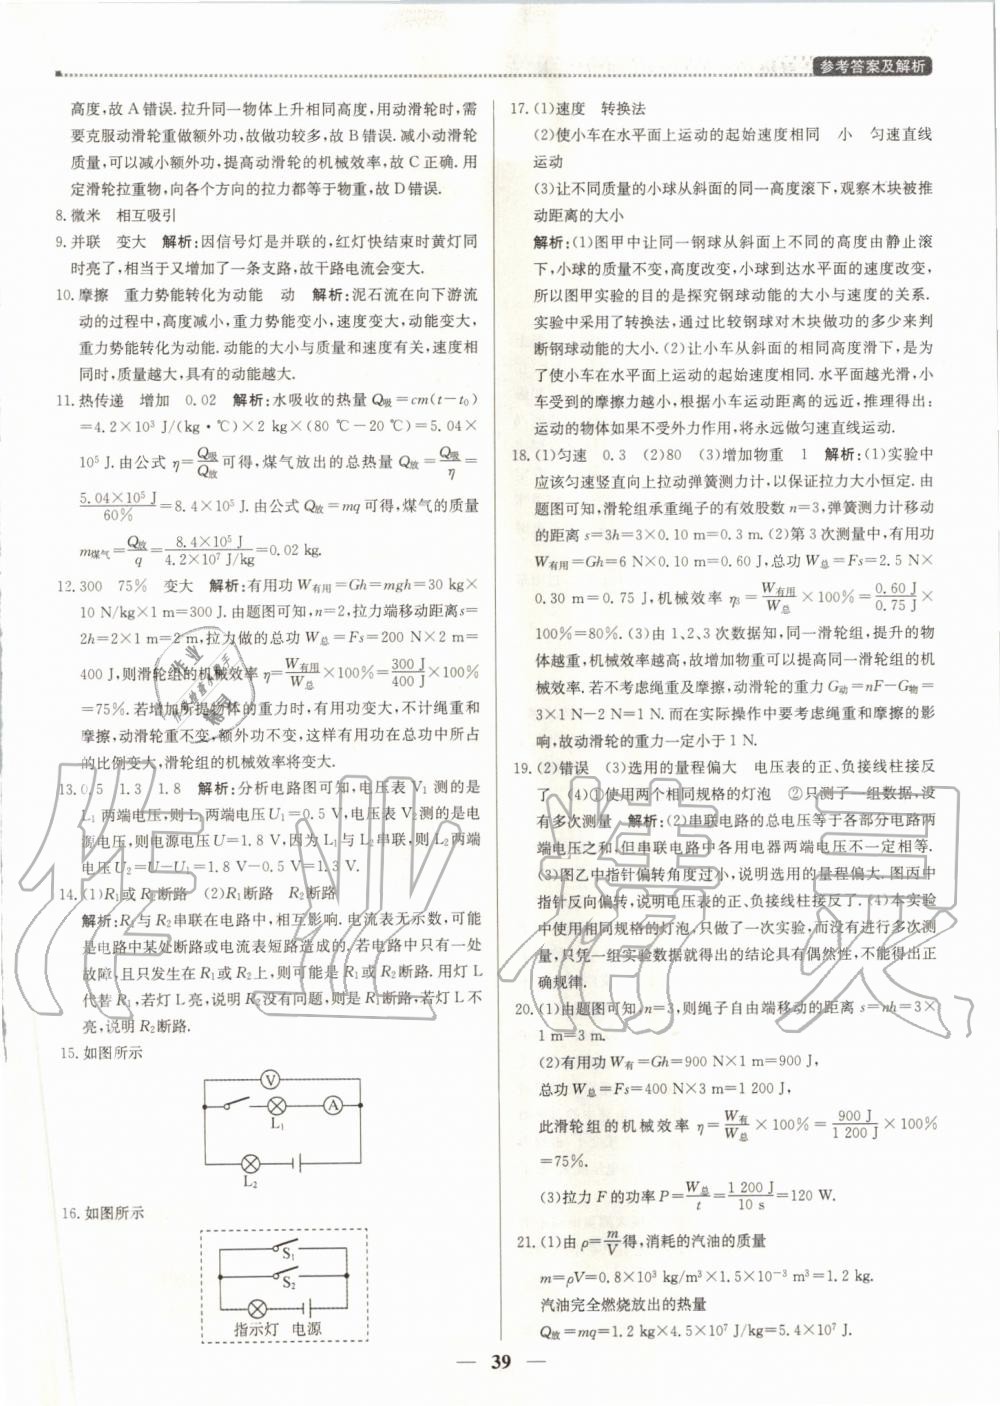 参考答案及解析
高度,故 A 错误.拉升同一物体上升相同高度,用动滑轮时,需
要克服动滑轮重做额外功,故做功较多,故 B 错误.减小动滑轮
质量,可以减小额外功,提高动滑轮的机械效率,故 C 正确.用
定滑轮拉重物,向各个方向的拉力都等于物重,故 D 错误.
8. 微米 相互吸引
9. 并联 变大 解析:因信号灯是并联的,红灯快结束时黄灯同
时亮了,相当于又增加了一条支路,故干路电流会变大.
10. 摩擦 重力势能转化为动能 动 解析:泥石流在向下游流
动的过程中,高度减小,重力势能变小,速度变大,动能变大,
重力势能转化为动能.动能的大小与质量和速度有关,速度相
同时,质量越大,具有的动能越大.
11. 热传递 增加 0.02 解析:水吸收的热量 Q吸=cm(t-t₀)
=4.2×10³ J/(kg·℃)×2 kg×(80 ℃-20 ℃)=5.04×
10⁵ J.由公式 η=Q吸/Q放可得,煤气放出的总热量 Q放=Q吸/η=
5.04×10⁵ J/60%=8.4×10⁵ J.由公式 Q放=mq 可得,煤气的质量
m煤气=Q放/q=8.4×10⁵ J/4.2×10⁷ J/kg=0.02 kg.
12. 300 75% 变大 解析:有用功 W有用=Gh=mgh=30 kg×
10 N/kg×1 m=300 J.由题图可知,n=2,拉力端移动距离s=
2h=2×1 m=2 m,拉力做的总功 W总=Fs=200 N×2 m=
400 J,则滑轮组的机械效率 η=W有用/W总×100%=300 J/400 J×100%
=75%.若增加所提物体的重力时,有用功变大,不计绳重和
摩擦,动滑轮重不变,额外功不变,这样有用功在总功中所占
的比例变大,滑轮组的机械效率将变大.
13. 0.5 1.3 1.8 解析:分析电路图可知,电压表 V₁ 测的是
L₁ 两端电压,则 L₁ 两端电压U₁=0.5 V,电压表 V₂测的是电
源电压,则电源电压U=1.8 V,因为 L₁与 L₂串联,则 L₂两端
电压U₂=U-U₁=1.8 V-0.5 V=1.3 V.
14. (1)R₁或 R₂断路 (2)R₁断路 R₂断路
解析:R₁与 R₂串联在电路中,相互影响.电流表无示数,可能
是电路中某处断路或电流表短路造成的.若电路中只有一处
故障,且只发生在 R₁或 R₂上,则可能是 R₁或R₂断路.用灯 L
代替 R₁,若灯 L亮,说明 R₂没有问题,则是 R₁断路;若灯 L不
亮,说明 R₂断路.
15. 如图所示
V
A
L₁
L₂
16. 如图所示
S₁
S₂
指示灯 电源
17. (1)速度 转换法
(2)使小车在水平面上运动的起始速度相同 小 匀速直线
运动
(3)让不同质量的小球从斜面的同一高度滚下,观察木块被推
动距离的大小
解析:(1)图甲中让同一钢球从斜面上不同的高度由静止滚
下,小球的质量不变,高度改变,小球到达水平面的速度改变,
所以图甲实验的目的是探究钢球动能的大小与速度的关系.
实验中采用了转换法,通过比较钢球对木块做功的多少来判
断钢球动能的大小.(2)让小车从斜面的相同高度滑下,是为
了使小车在水平面上运动的起始速度相同.水平面越光滑,小
车受到的摩擦力越小,根据小车运动距离的远近,推理得出:
运动的物体如果不受外力作用,将永远做匀速直线运动.
18. (1)匀速 0.3 (2)80 (3)增加物重 1 解析:(1)实验中
应该匀速竖直向上拉动弹簧测力计,以保证拉力大小恒定.由
题图可知,滑轮组承重绳子的有效股数 n=3,弹簧测力计移动
的距离 s=3h=3×0.10 m=0.3 m.(2)第 3 次测量中,有用功
W有用=Gh=6 N×0.10 m=0.60 J,总功 W总=Fs=2.5 N×
0.30 m=0.75 J,机械效率 η₃=W有用/W总×100%=0.60 J/0.75 J×
100%=80%.(3)由 1、2、3 次数据知,同一滑轮组,提升的物
体越重,机械效率越高,故增加物重可以提高同一滑轮组的机
械效率.若不考虑绳重及摩擦,动滑轮的重力 G动=nF-G物=
3×1 N-2 N=1 N.而在实际操作中要考虑绳重和摩擦的影
响,故动滑轮的重力一定小于 1 N.
19. (2)错误 (3)选用的量程偏大 电压表的正、负接线柱接反
了 (4)①使用两个相同规格的灯泡 ②只测了一组数据,没
有多次测量 解析:(2)串联电路的总电压等于各部分电路两
端电压之和,但串联电路中各用电器两端电压不一定相等.
(3)图乙中指针偏转角度过小,说明选用的量程偏大.图丙中
指针反向偏转,说明电压表的正、负接线柱接反了.(4)本实验
中使用相同规格的灯泡,只做了一次实验,而没有进行多次测
量,只凭一组实验数据就得出的结论具有偶然性,不能得出正
确规律.
20. (1)由题图可知,n=3,则绳子自由端移动的距离 s=nh=3×
1 m=3 m.
(2)有用功 W有=Gh=900 N×1 m=900 J,
总功 W总=Fs=400 N×3 m=1 200 J,
此滑轮组的机械效率 η=W有/W总×100%=900 J/1 200 J×100%
=75%.
(3)拉力 F 的功率 P=W总/t=1 200 J/10 s=120 W.
21. (1)由 ρ=m/V得,消耗的汽油的质量
m=ρV=0.8×10³ kg/m³×1.5×10⁻³ m³=1.2 kg.
汽油完全燃烧放出的热量
Q放=mq=1.2 kg×4.5×10⁷ J/kg=5.4×10⁷ J.
39
作业精灵